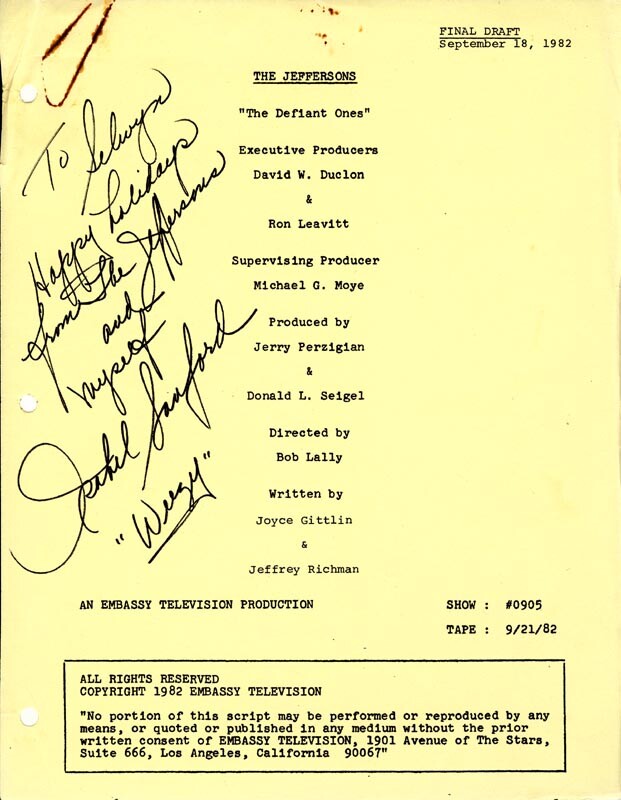 FINAL DRAFT
September 18, 1982
THE JEFFERSONS
"The Defiant Ones"
Executive Producers
David W. Duclon
&
Ron Leavitt
Supervising Producer
Michael G. Moye
Produced by
Jerry Perzigian
&
Donald L. Seigel
Directed by
Bob Lally
Written by
Joyce Gittlin
&
Jeffrey Richman
To Selwyn
Happy holidays
from the Jeffersons
and
myself
Isabel Sanford
"Weezy"
AN EMBASSY TELEVISION PRODUCTION
SHOW : #0905
TAPE : 9/21/82
ALL RIGHTS RESERVED
COPYRIGHT 1982 EMBASSY TELEVISION
"No portion of this script may be performed or reproduced by any
means, or quoted or published in any medium without the prior
written consent of EMBASSY TELEVISION, 1901 Avenue of The Stars,
Suite 666, Los Angeles, California 90067"